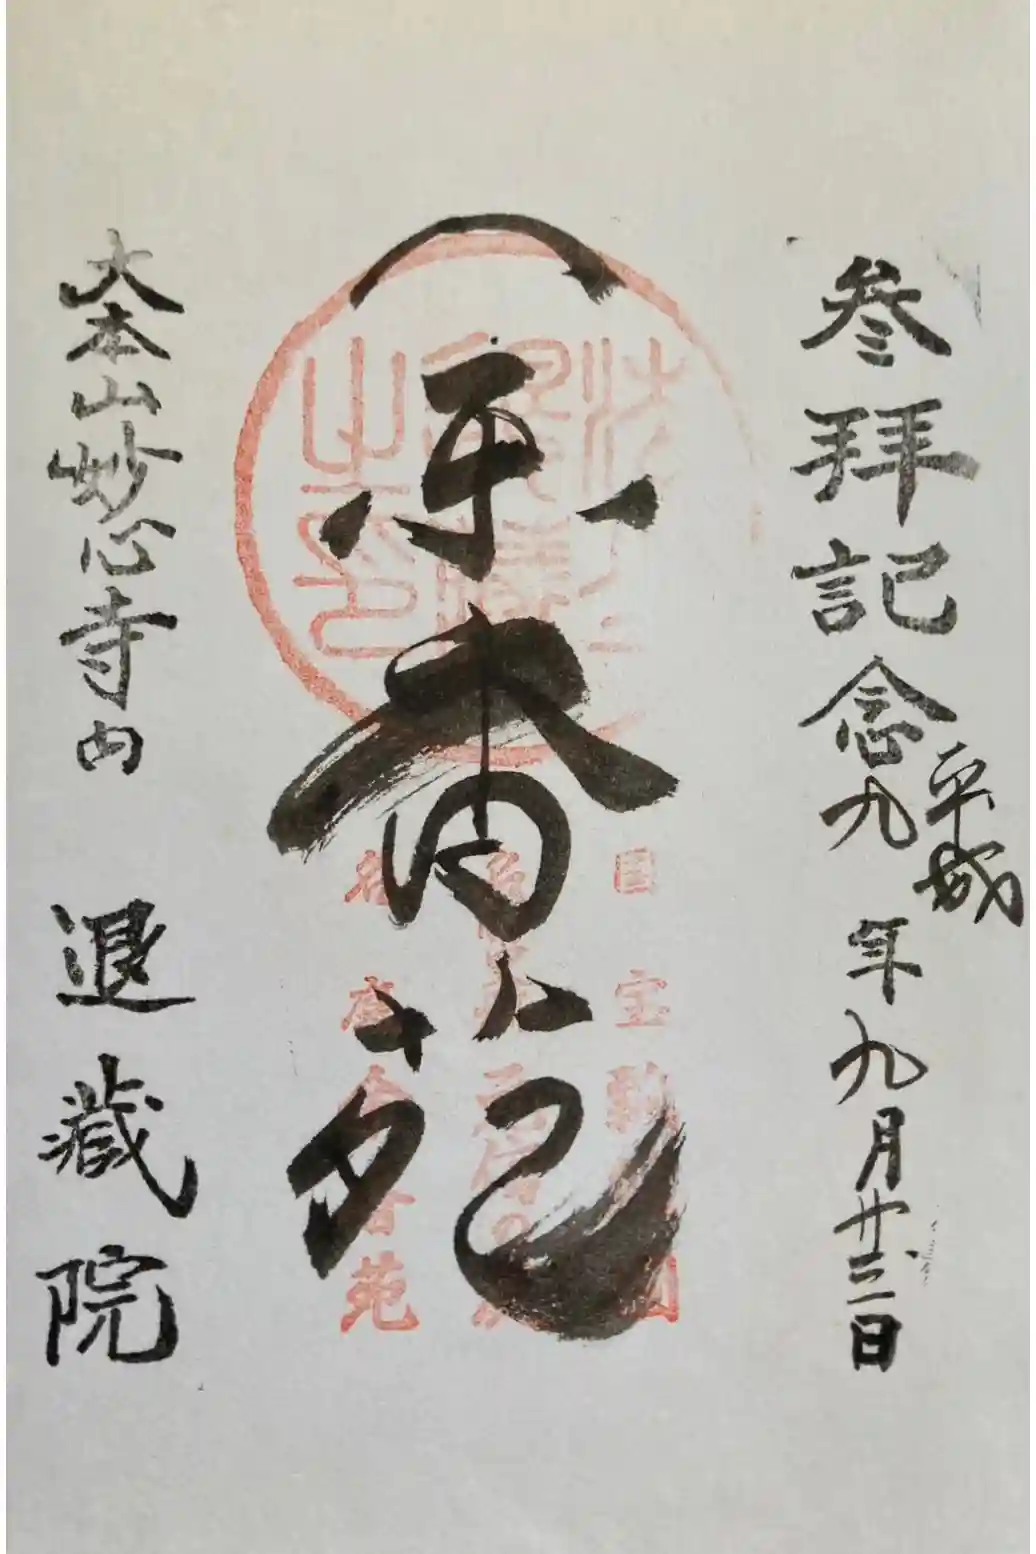 参拝記念
平成
九年九月廿三日
余香苑
国宝瓢
名庭余香苑
大本山妙心寺内
退蔵院